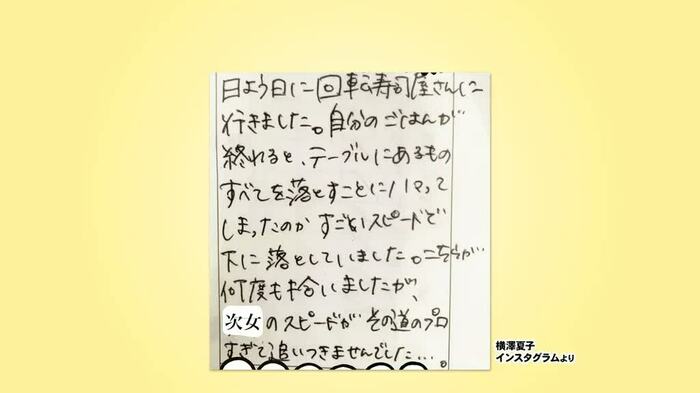 日よう日に回転寿司屋さんに
行きました。自分のごはんが
終れると、テーブルにあるもの
すべてを落とすことにハマって
しまったのか すごいスピードで
下に落としていました。こちらが
何度も拾いましたが、
次女のスピードが その道のプロ
すぎて追いつきませんでした…。
横澤夏子
インスタグラムより